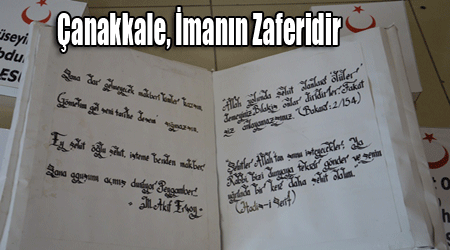 Çanakkale, İmanın Zaferidir
üseyi
bdu
ESİ
Sana dar gelmeyecek makberi kimler kazsın,
"Gömelim gel seni tarihe desem" sığmazsın.
Ey şehit oğlu şehit, isteme benden makber,
Sana ağuşunu açmış duruyor Peygamber!
M. Akif Ersoy
"Allah yolunda şehit olanlara "ölüler"
demeyiniz. Bilakis onlar diridirler. Fakat
siz anlayamazsınız." (Bakara: 2/154)
Şehitler Allah'tan şunu isteyecekler: Ya
Rabbi, bizi dünyaya tekrar gönder ve senin
uğrunda bir kere daha şehit olalım.
(Hadis-i Şerif)